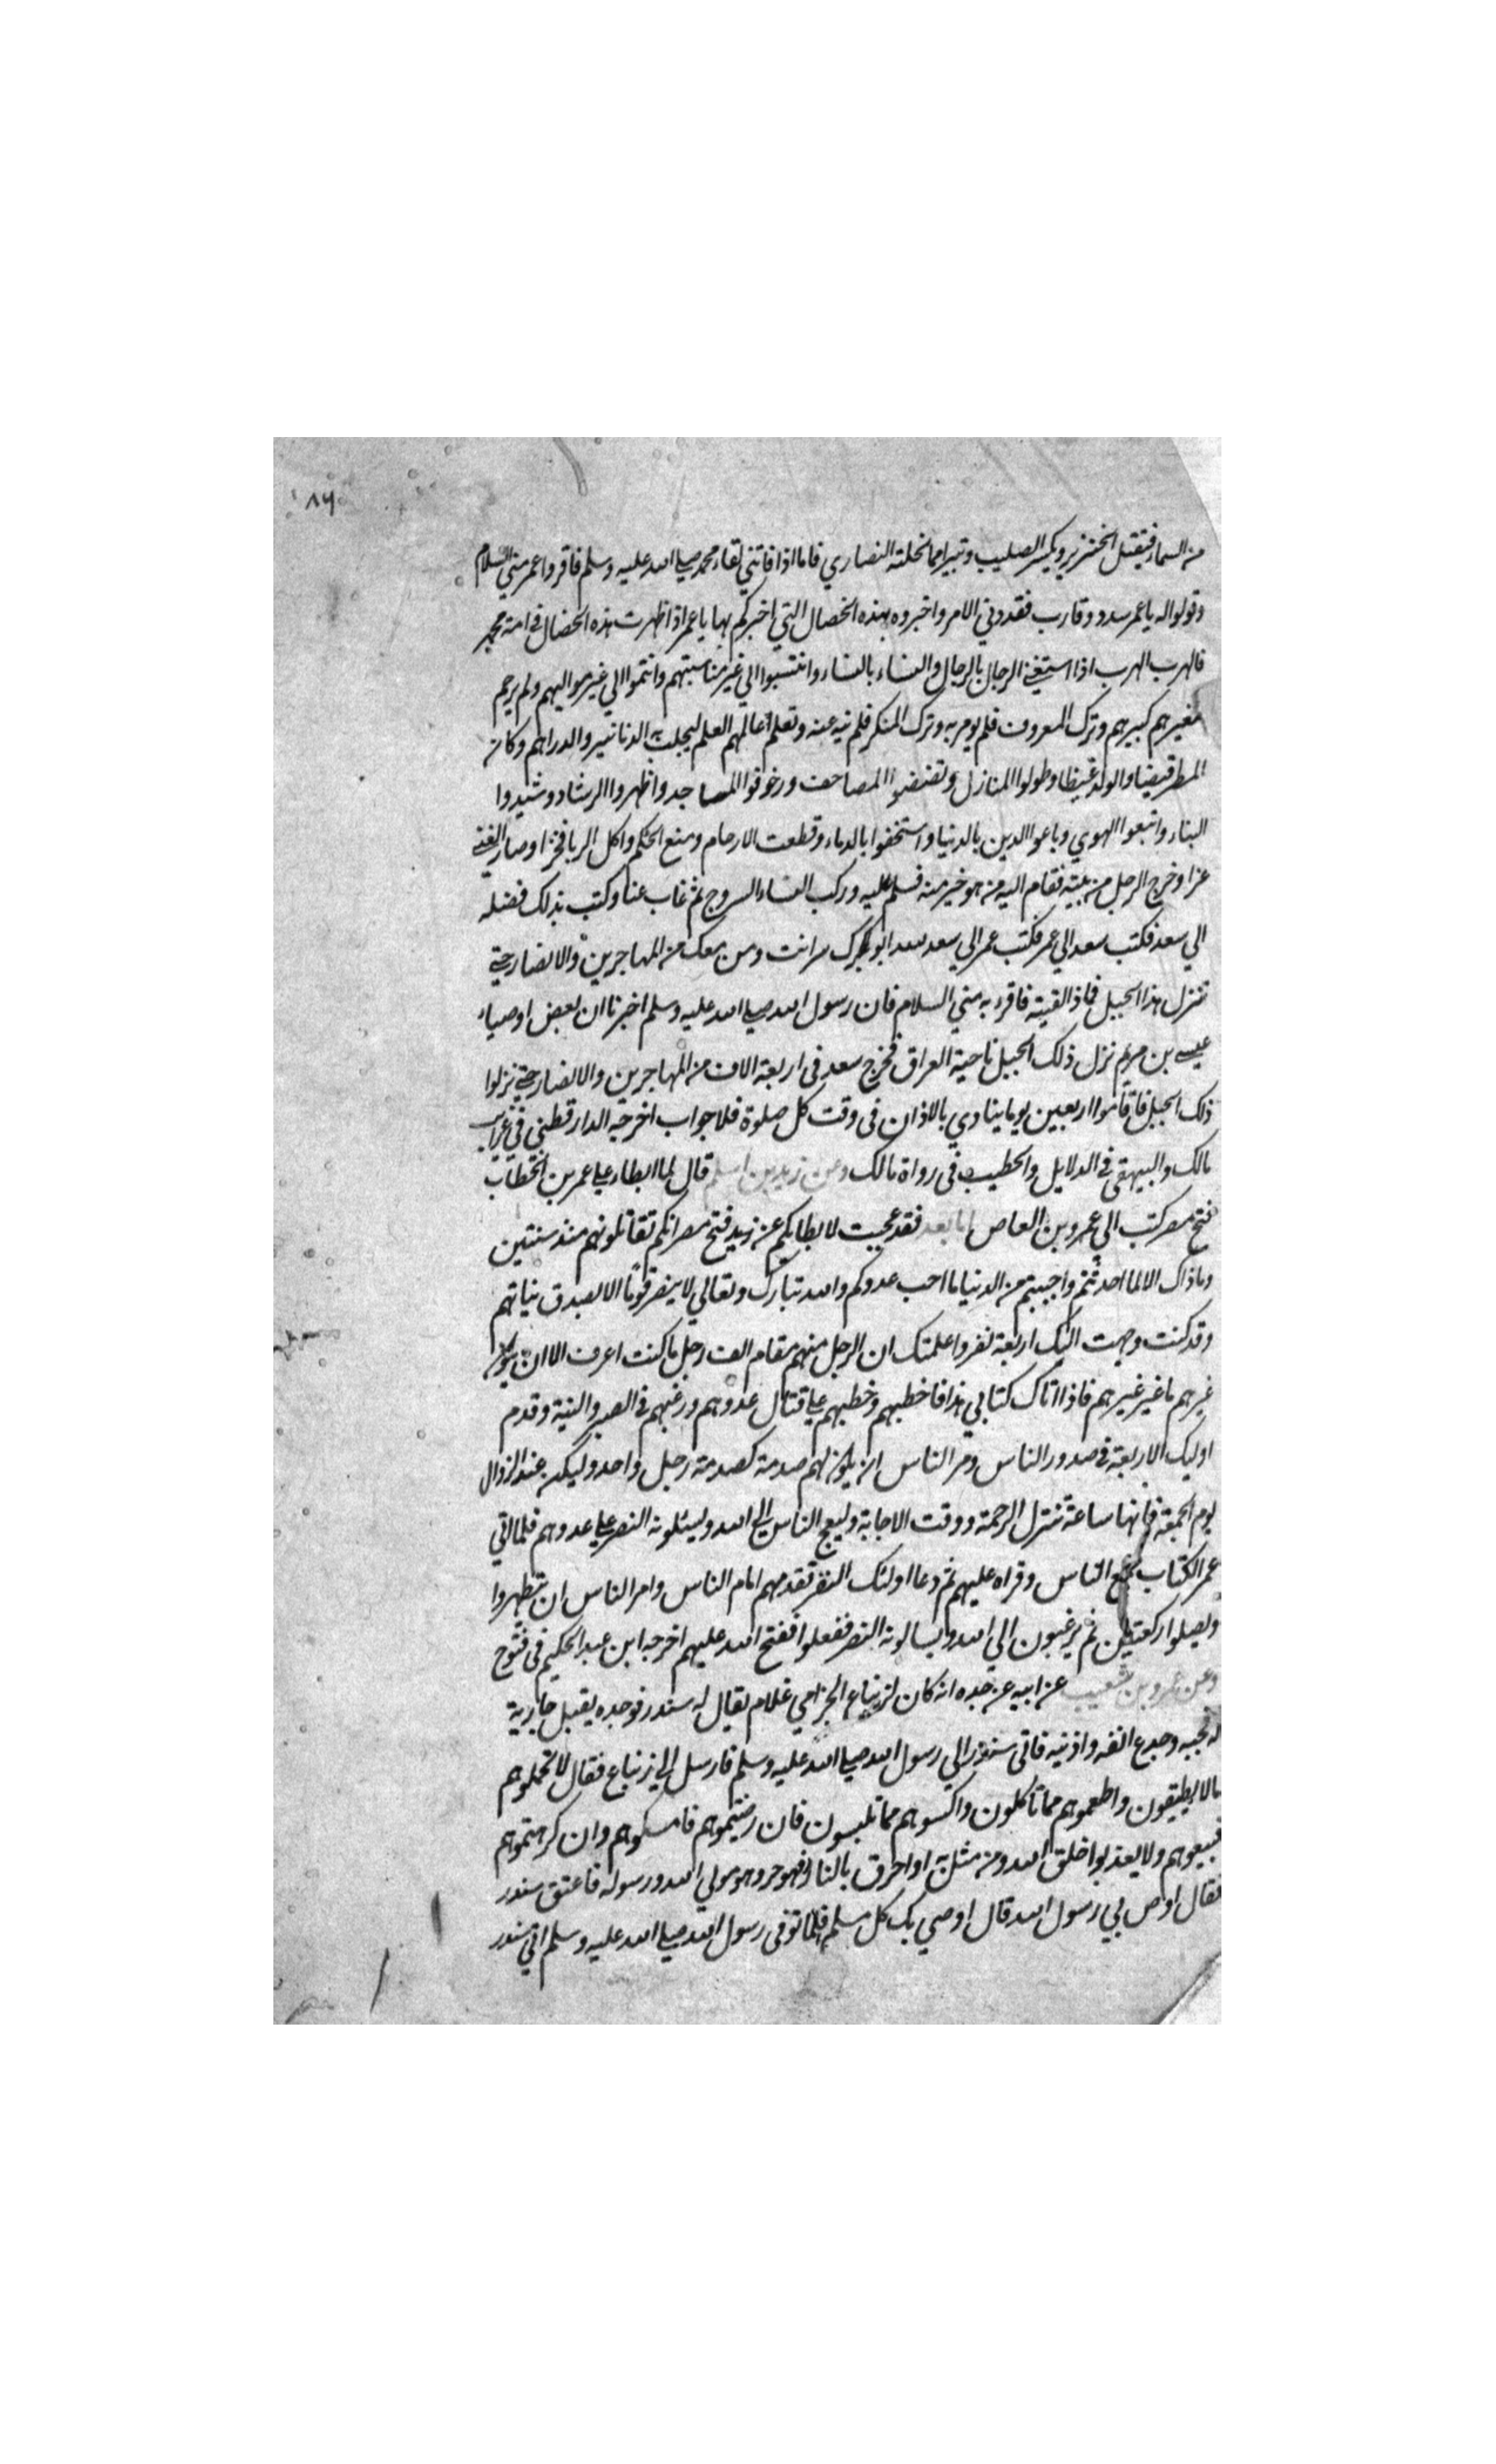 ٨٩
من السماء فيقتل الخنزير ويكسر الصليب وتبيرا مما نحلته النصاري فاما اذا فاتني لقاء محمد صلي الله عليه وسلم فاقروا عمر مني السلام
وقولوا له يا عمر سدد وقارب فقد دني الامر واخبروه بهذه الخصال التي اخبركم بها يا عمر اذا ظهرت هذه الخصال في امة محمد
فالهرب الهرب اذا استغني الرجال بالرجال والنساء بالنساء وانتسبوا الي غير مناسبتهم وانتموا الي غير مواليهم ولم يرحم
صغيرهم كبيرهم وترك المعروف فلم يومر به وترك المنكر فلم ينه عنه وتعلم عالمهم العلم ليجلب به الدنانير والدراهم وكان
المطر قيضا والولد غيظا وطولوا المنازل وتفضضوا المصاحف وزخرفوا المساجد واظهروا الرشاد وشيدوا
البناء واتبعوا الهوي وباعوا الدين بالدنيا واستخفوا بالدماء وقطعت الارحام ومنع الحكم واكل الربا فخرا وصار الغني
عزا وخرج الرجل من بيته فقام اليه من هو خير منه فسلم عليه وركب النساء السروج ثم غاب عنا وكتب بذلك فضلة
الي سعد فكتب سعد الي عمر فكتب عمر الي سعد لله ابوك سر انت ومن معك من المهاجرين والانصار حتي
تنزل هذا الجبل فاذا لقيته فاقرءه مني السلام فان رسول الله صلي الله عليه وسلم اخبرنا ان بعض اوصياء
عيسي بن مريم نزل ذلك الجبل ناحية العراق فخرج سعد في اربعة الاف من المهاجرين والانصار حتي نزلوا
ذلك الجبل فاقاموا اربعين يوما ينادي بالاذان في وقت كل صلوة فلا جواب اخرجه الدارقطني في غرايب
مالك والبيهقي في الدلايل والخطيب في رواة مالك وعن زيد بن اسلم قال لما ابطاء علي عمر بن الخطاب
فتح مصر كتب الي عمرو بن العاص اما بعد فقد عجبت لابطايكم عن فتح مصر انكم تقاتلونهم منذ سنتين
وما ذاك الا لما احدثتم واحببتم من الدنيا ما احب عدوكم والله تبارك وتعالي لا ينصر قوما الا بصدق نياتهم
وقد كنت وجهت اليك اربعة نفر واعلمتك ان الرجل منهم مقام الف رجل ما كنت اعرف الا ان يكون
غيرهم ما غير غيرهم فاذا اتاك كتابي هذا فاخطبهم وخطبهم علي قتال عدوهم ورغبهم في الصبر والنية وقدم
اوليك الاربعة في صدور الناس ومر الناس ان يكون لهم صدمة كصدمة رجل واحد وليكن عند الزوال
يوم الجمعة فانها ساعة تنزل الرحمة ووقت الاجابة وليعج الناس الي الله ويسئلونه النصر علي عدوهم فلما اتي
عمر الكتاب جمع الناس وقراه عليهم ثم دعا اولئك النفر تقدمهم امام الناس وامر الناس ان يتطهروا
ويصلوا ركعتين ثم يرغبون الي الله ويسالونه النصر ففعلوا ففتح الله عليهم اخرجه ابن عبد الحكيم في فتوح
وعن عمرو بن شعيب عن ابيه عن جده انه كان لزنباع الجزامي غلام يقال له سندر فوجده يقبل جارية
له فجبه وجدع انفه واذنيه فاتي سندر الي رسول الله صلي الله عليه وسلم فارسل الي زنباع فقال لا تحملوهم
ما لا يطيقون واطعموهم مما تاكلون واكسوهم مما تلبسون فان رضيتموهم فامسكوهم وان كرهتموهم
فبيعوهم ولا يعذبوا خلق الله ومن مثل به او احرق بالنار فهو حر وهو مولي الله ورسوله فاعتق سندر
فقال اوص بي رسول الله قال اوصي بك كل مسلم فلما توفي رسول الله صلي الله عليه وسلم اتي سندر